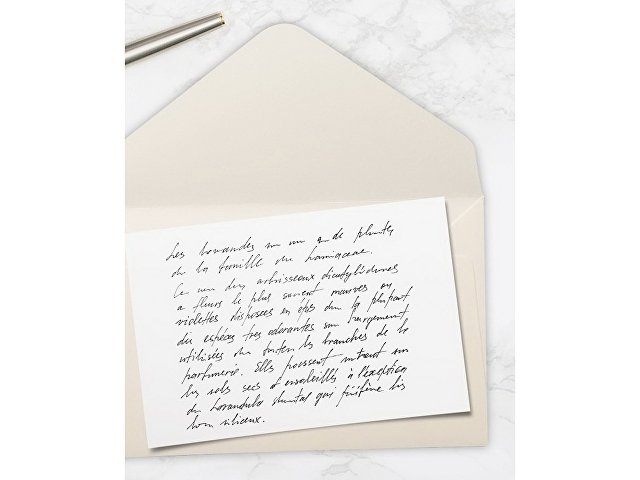 Les lavandes un de plantes
de la famille des Lamiaceae.
Ce des arbrisseaux dicotylédones
a fleurs le plus souvent mauves ou
violettes disposées en épis la plupart
des espèces très odorantes largement
utilisées toutes les branches de la
parfumerie. Elles poussent surtout
les sols secs ensoleillés à l'exception
du Lavandula préfère les
siliceux.